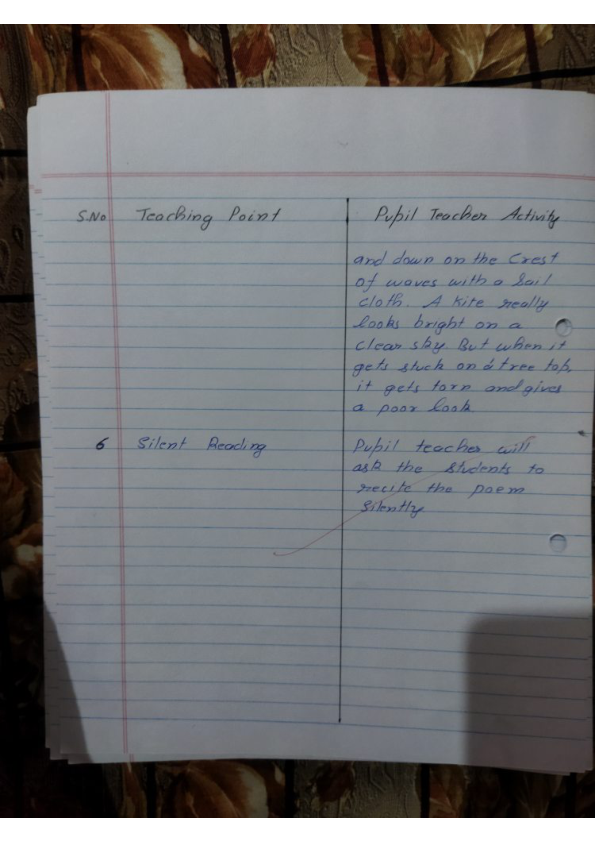 S.No Teaching Point Pupil Teacher Activity
and down on the Crest
of waves with a Sail
cloth. A Kite really
looks bright on a
clear sky. But when it
gets stuck on a tree top,
it gets torn and gives
a poor look
6 Silent Reading Pupil teacher will
ask the students to
recite the poem
Silently